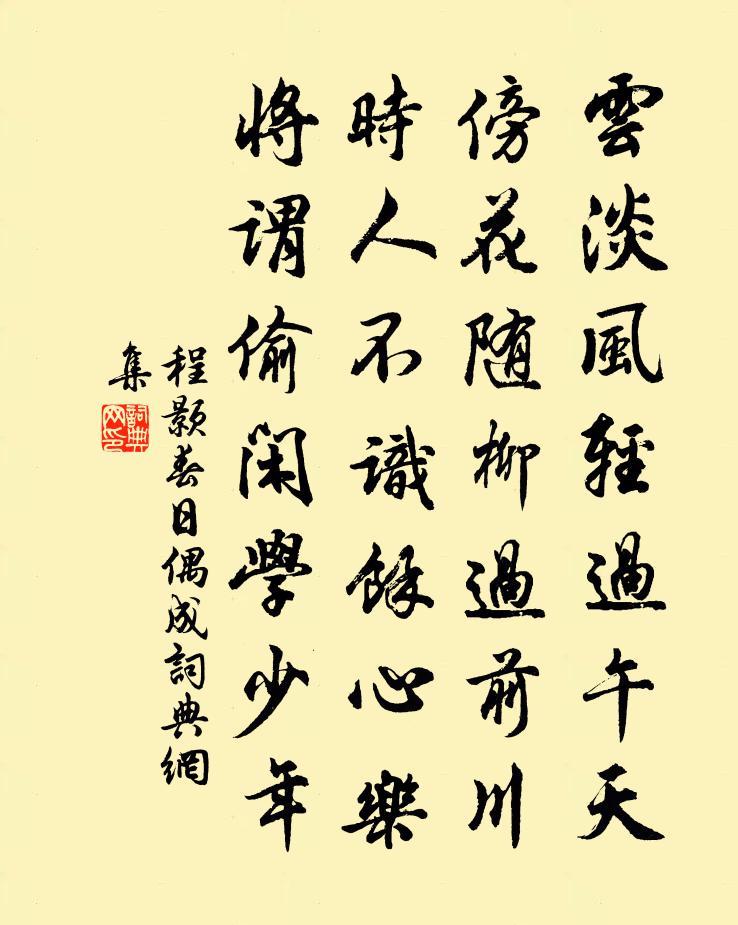 雲淡風輕過午天
傍花随柳過前川
時人不識餘心樂
將謂偷閑學少年
程顥春日偶成詞典網
集
詞典网印